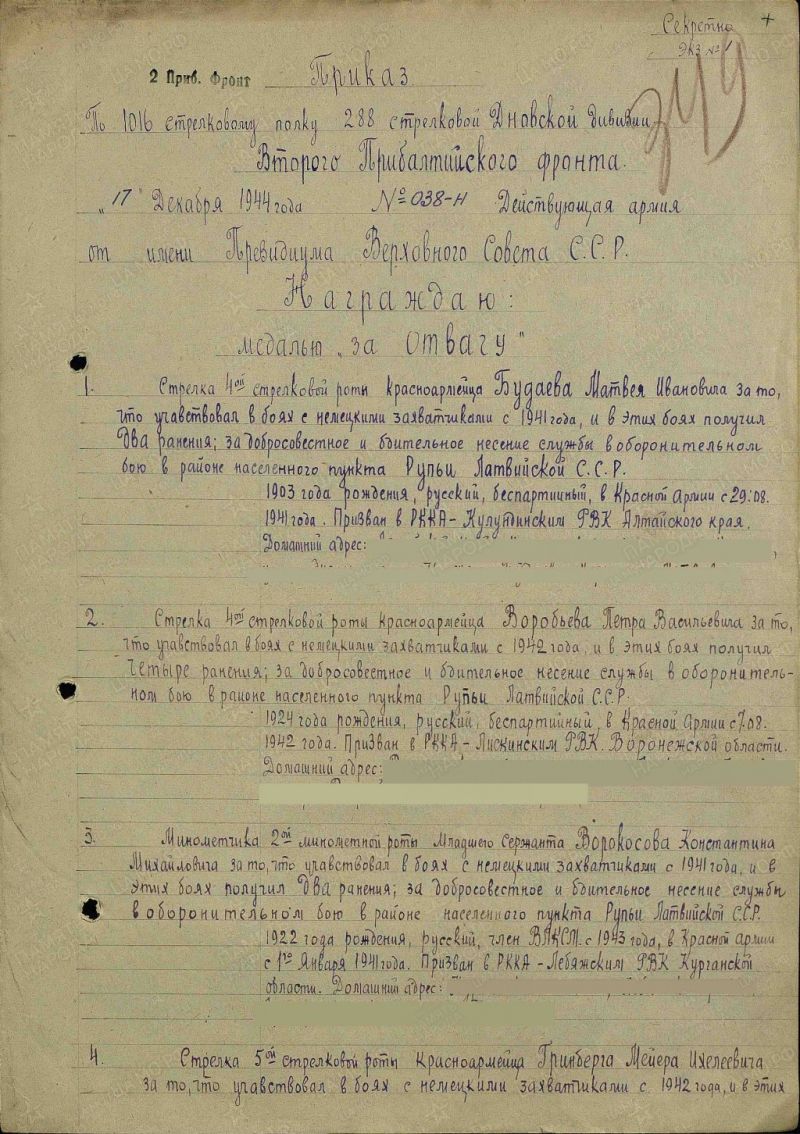 Секретно
Экз № 1
2 Приб. Фронт Приказ
По 1016 стрелковому полку 288 стрелковой Дновской дивизии
Второго Прибалтийского фронта.
„17" Декабря 1944 года № 038-н Действующая армия
от имени Президиума Верховного Совета С.С.Р.
Награждаю:
медалью „за отвагу"
1. Стрелка 4ой стрелковой роты красноармейца Будаева Матвея Ивановича за то,
что учавствовал в боях с немецкими захватчиками с 1941 года, и в этих боях получил
два ранения; за добросовестное и бдительное несение службы в оборонительном
бою в районе населенного пункта Рупьи Латвийской С.С.Р.
1903 года рождения, русский, беспартийный, в Красной Армии с 29.08.
1941 года. Призван в РККА - Кулундинским РВК Алтайского края.
Домашний адрес:
2. Стрелка 4ой стрелковой роты красноармейца Воробьева Петра Васильевича за то,
что учавствовал в боях с немецкими захватчиками с 1942 года, и в этих боях получил
четыре ранения; за добросовестное и бдительное несение службы в оборонитель-
ном бою в районе населенного пункта Рупьи Латвийской С.С.Р.
1924 года рождения, русский, беспартийный, в Красной Армии с 7.08.
1942 года. Призван в РККА - Лискинским РВК. Воронежской области.
Домашний адрес:
3. Минометчика 2ой минометной роты Младшего Сержанта Ворокосова Константина
Михайловича за то, что учавствовал в боях с немецкими захватчиками с 1941 года, и в
этих боях получил два ранения; за добросовестное и бдительное несение службы
в оборонительном бою в районе населенного пункта Рупьи Латвийской С.С.Р.
1922 года рождения, русский, член ВЛКСМ с 1943 года, в Красной Армии
с 1го Января 1941 года. Призван в РККА - Лебяжским РВК Курганской
области. Домашний адрес:
4. Стрелка 5ой стрелковой роты Красноармейца Гринберга Мейера Ихелеевича
за то, что учавствовал в боях с немецкими захватчиками с 1942 года, и в этих